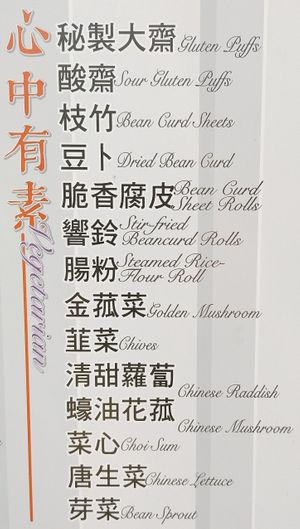 心中有素
Vegetarian
秘製大齋 Gluten Puffs
酸齋 Sour Gluten Puffs
枝竹 Bean Curd Sheets
豆卜 Dried Bean Curd
脆香腐皮 Bean Curd
Sheet Rolls
響鈴 Stir-fried
Beancurd Rolls
腸粉 Steamed Rice-
Flour Roll
金菰菜 Golden Mushroom
韮菜 Chives
清甜蘿蔔 Chinese Raddish
蠔油花菰 Chinese Mushroom
菜心 Choi Sum
唐生菜 Chinese Lettuce
芽菜 Bean Sprout